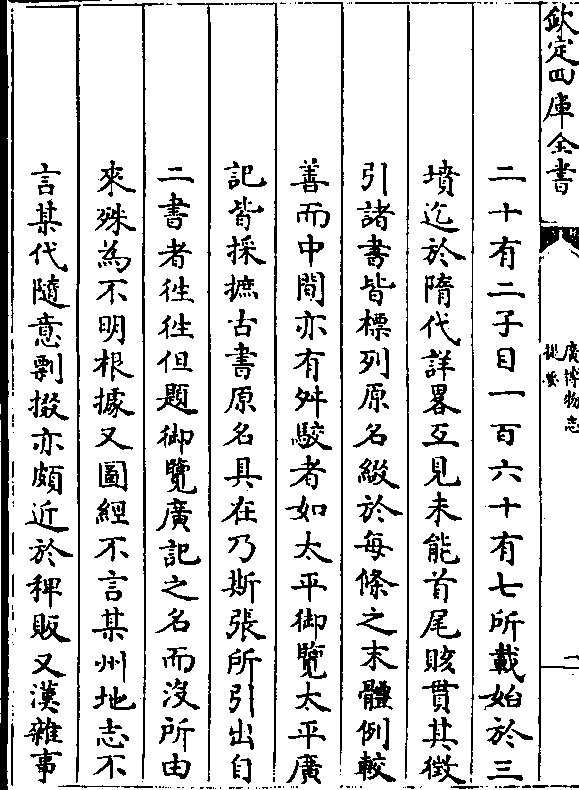 欽定四庫全書
廣博物志
提要
二
二十有二子目一百六十有七所載始於三
墳迄於隋代詳畧互見未能首尾賅貫其徴
引諸書皆標列原名綴於每條之末體例較
善而中間亦有舛駮者如太平御覽太平廣
記皆採摭古書原名具在乃斯張所引出自
二書者徃徃但題御覽廣記之名而沒所由
來殊為不明根據又圖經不言某州地志不
言某代隨意剽掇亦頗近於稗販又漢雜事